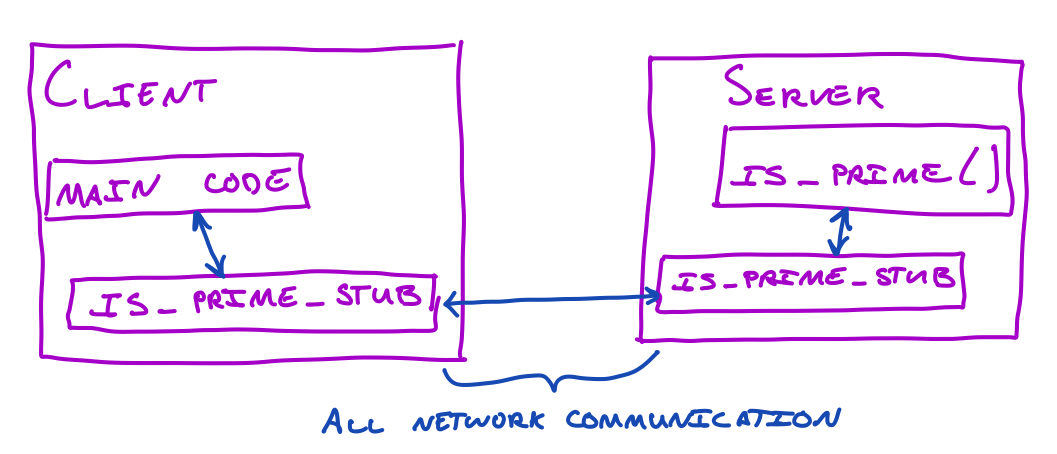 CLIENT
MAIN CODE
IS_PRIME_STUB
SERVER
IS_PRIME()
IS_PRIME_STUB
ALL NETWORK COMMUNICATION